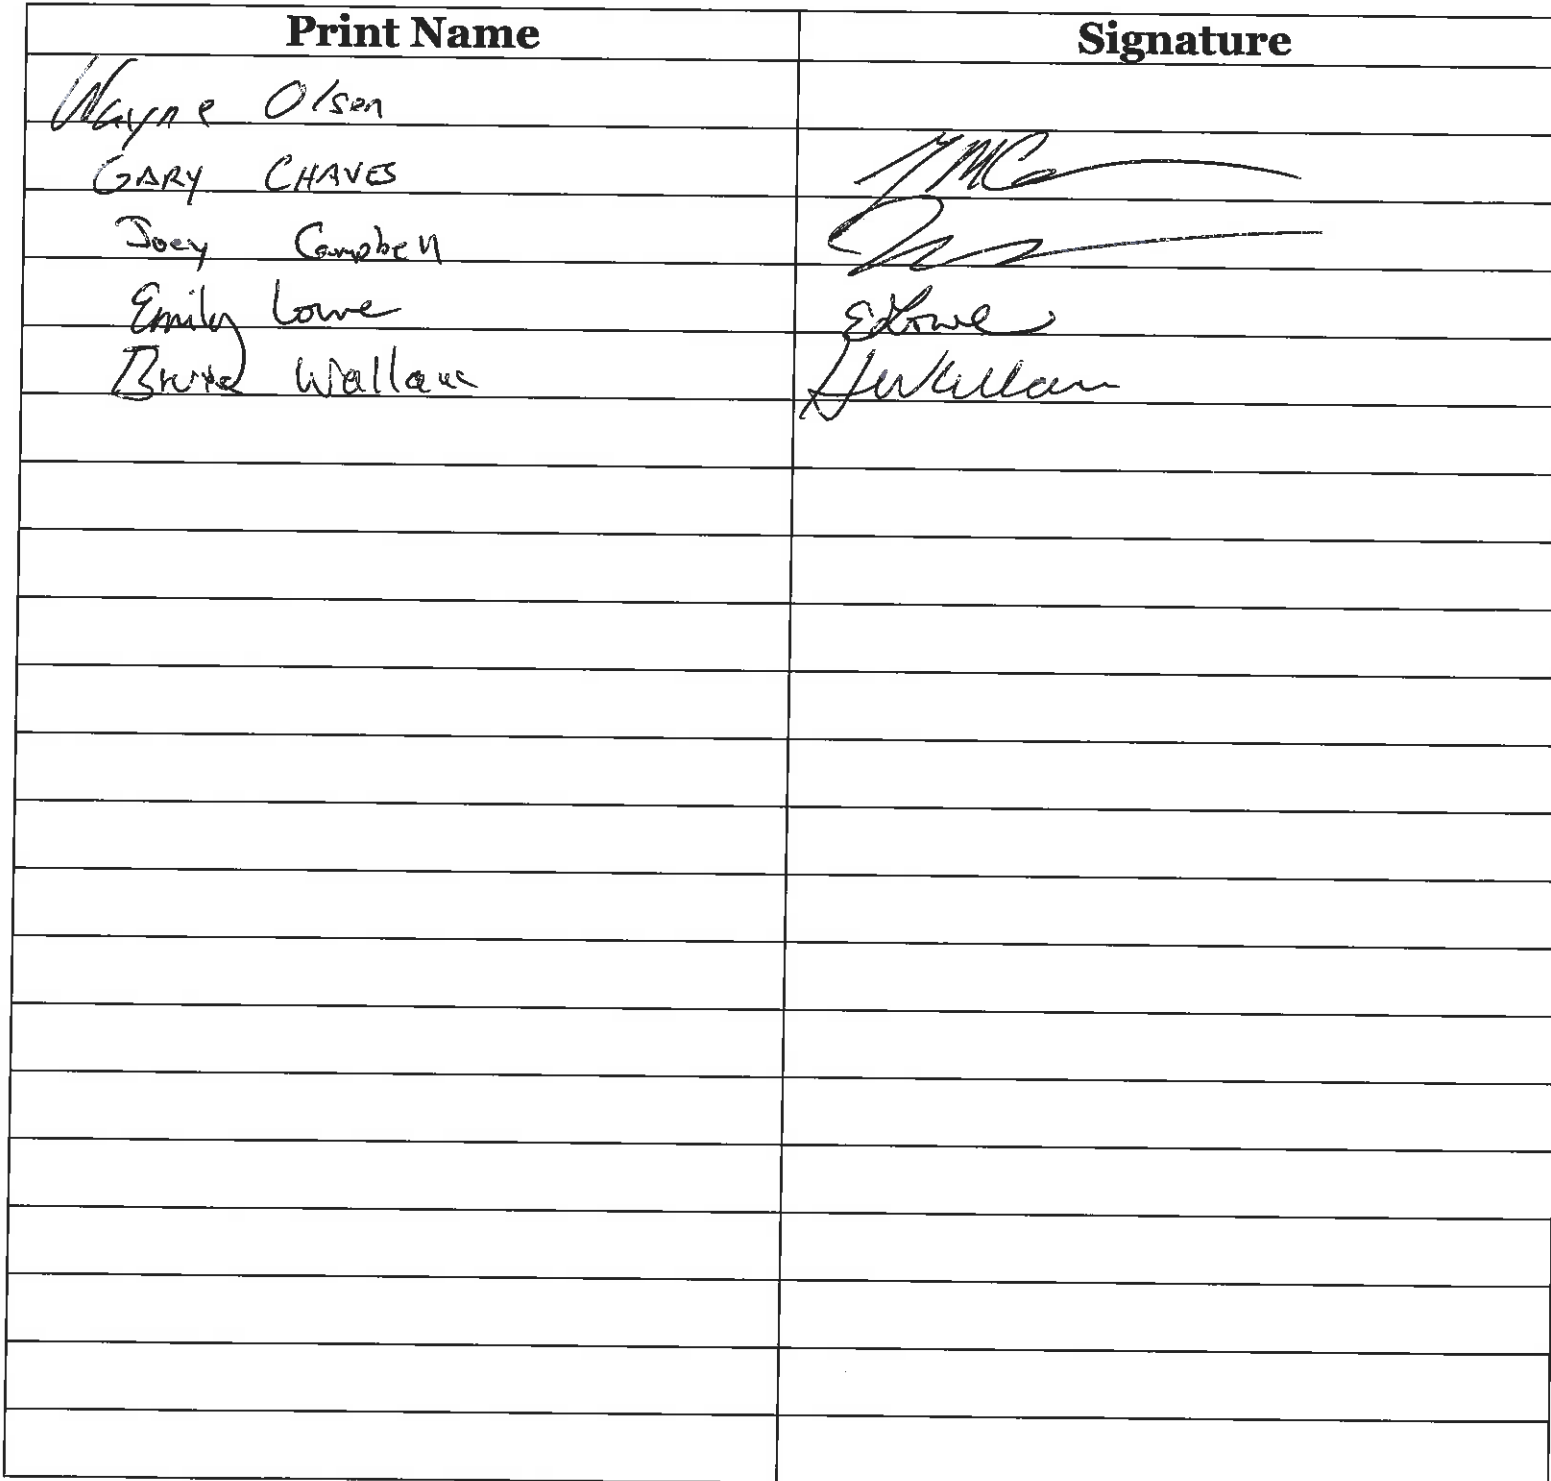 Print Name Signature
Wayne Olsen
GARY CHAVES
Joey Campbell
Emily Lowe ELowe
Wallace